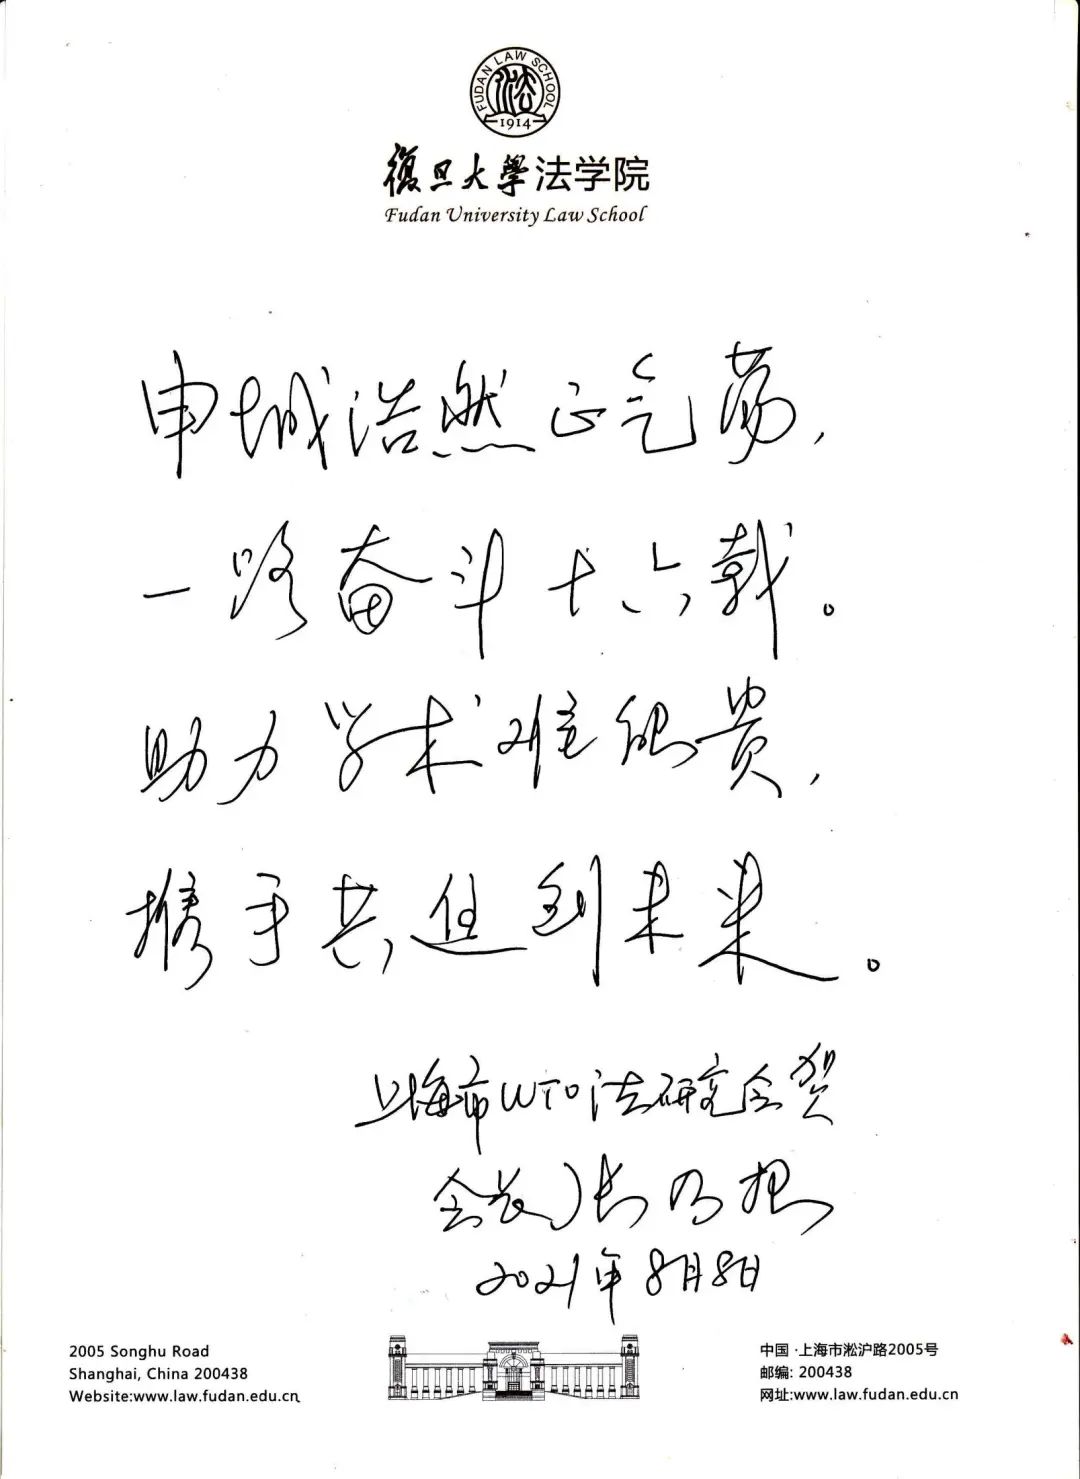 FUDAN LAW SCHOOL
1914
復旦大學法学院
Fudan University Law School
申城浩然正气荡，
一路奋斗十六载。
助力学术难能贵，
携手共進到未来。
上海市WTO法研究会贺
会长 张乃根
2021年8月8日
2005 Songhu Road
Shanghai, China 200438
Website:www.law.fudan.edu.cn
中国·上海市淞沪路2005号
邮编: 200438
网址:www.law.fudan.edu.cn